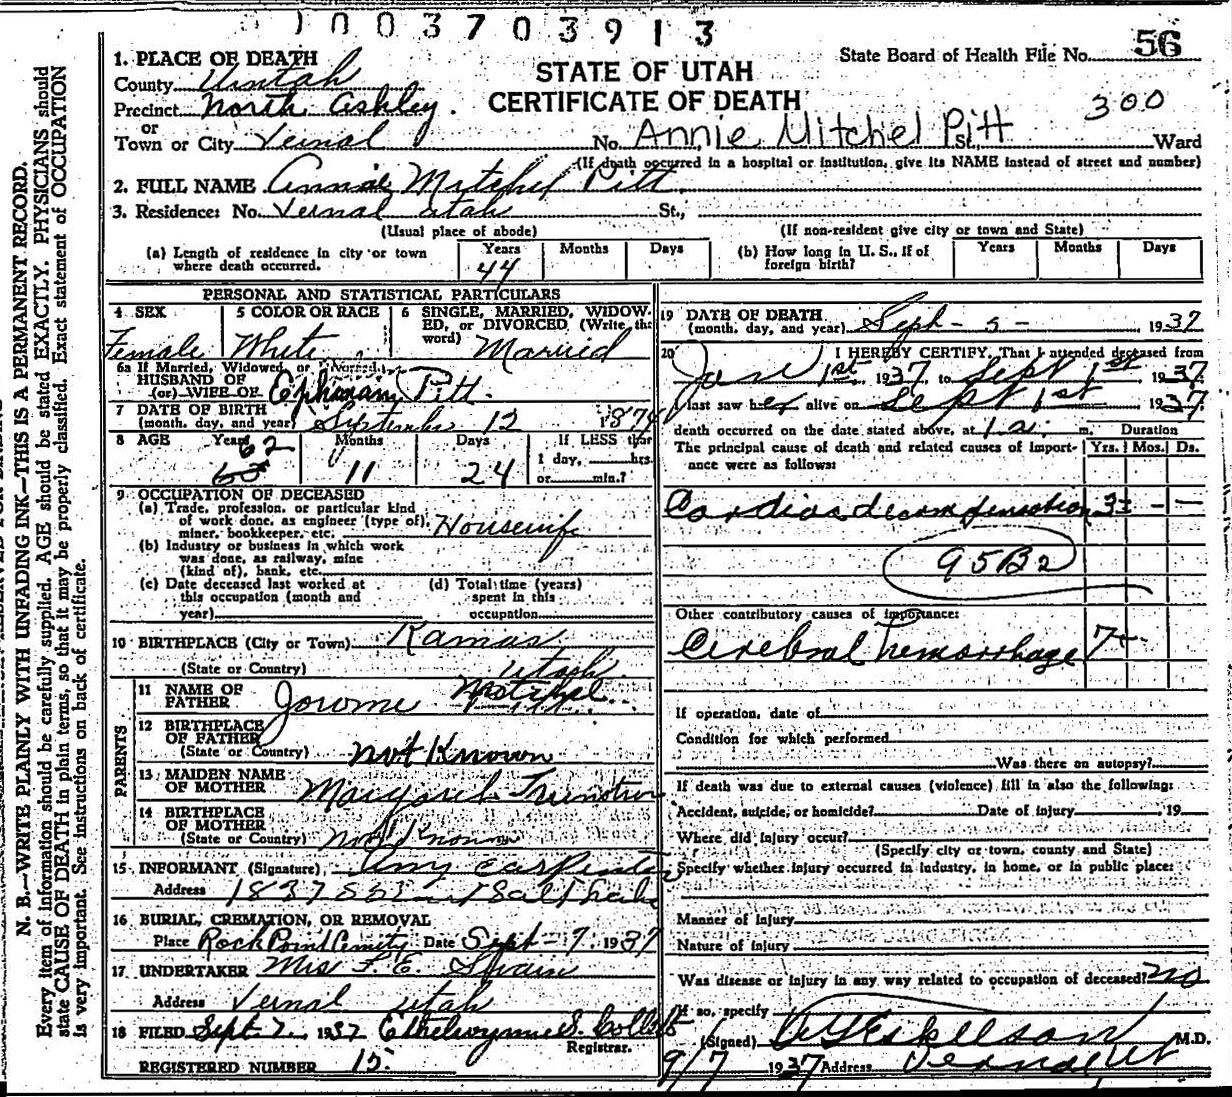 1003703913
State Board of Health File No. 56
1. PLACE OF DEATH
STATE OF UTAH
CERTIFICATE OF DEATH
300
County Uintah
Precinct North Ashley.
or
Town or City Vernal No. Annie Mitchel Pitt St., Ward
(If death occurred in a hospital or institution, give its NAME instead of street and number)
2. FULL NAME Annie Mitchel Pitt
3. Residence: No. Vernal Utah St.,
(Usual place of abode) (If non-resident give city or town and State)
(a) Length of residence in city or town where death occurred. Years 44 Months Days
(b) How long in U. S., if of foreign birth? Years Months Days
PERSONAL AND STATISTICAL PARTICULARS
4 SEX Female
5 COLOR OR RACE White
6 SINGLE, MARRIED, WIDOWED, or DIVORCED (Write the word) Married
6a If Married, Widowed, or
HUSBAND OF
(or) WIFE OF Pitt.
7 DATE OF BIRTH
(month, day, and year) September 12 1874
8 AGE Years 62 Months 11 Days 24 If LESS than 1 day, hrs. or min.?
9 OCCUPATION OF DECEASED
(a) Trade, profession, or particular kind of work done, as engineer (type of), miner, bookkeeper, etc. Housewife
(b) Industry or business in which work was done, as railway, mine (kind of), bank, etc.
(c) Date deceased last worked at this occupation (month and year)
(d) Total time (years) spent in this occupation
10 BIRTHPLACE (City or Town) Kamas
(State or Country) Utah
PARENTS
11 NAME OF FATHER Jerome Mitchel
12 BIRTHPLACE OF FATHER
(State or Country) Not Known
13 MAIDEN NAME OF MOTHER Margaret
14 BIRTHPLACE OF MOTHER
(State or Country) Not Known
15 INFORMANT (Signature) Amy Carpenter
Address 1837
16 BURIAL, CREMATION, OR REMOVAL
Place Rock Point Date Sept - 7. 1937
17 UNDERTAKER Mrs F. E. Swain
Address Vernal Utah
18 FILED Sept 7. 1937 Ethelwynne S. Collett
Registrar.
REGISTERED NUMBER 15.
19 DATE OF DEATH
(month, day, and year) Sept - 5 - 1937
20 I HEREBY CERTIFY, That I attended deceased from
June 1st 1937 to Sept 1st 1937
I last saw her alive on Sept 1st 1937
death occurred on the date stated above, at 1 a. m. Duration
The principal cause of death and related causes of importance were as follows: Yrs. Mos. Ds.
Cardiac decompensation 3± - -
95B2
Other contributory causes of importance:
Cerebral hemorrhage 7
If operation, date of
Condition for which performed
Was there an autopsy?
If death was due to external causes (violence) fill in also the following:
Accident, suicide, or homicide? Date of injury , 19
Where did injury occur?
(Specify city or town, county and State)
Specify whether injury occurred in industry, in home, or in public place:
Manner of injury
Nature of injury
Was disease or injury in any way related to occupation of deceased? no
If so, specify
(Signed) M.D.
9/7 1937 Address Vernal Ut
N. B.—WRITE PLAINLY WITH UNFADING INK—THIS IS A PERMANENT RECORD.
Every item of information should be carefully supplied. AGE should be stated EXACTLY. PHYSICIANS should
state CAUSE OF DEATH in plain terms, so that it may be properly classified. Exact statement of OCCUPATION
is very important. See instructions on back of certificate.